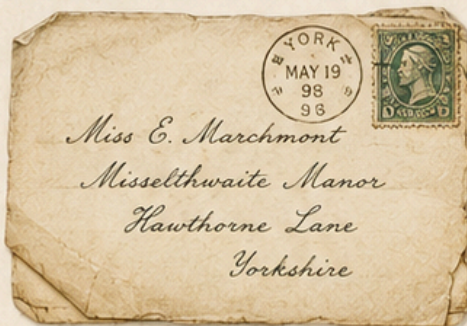 YORK
MAY 19
98
98
Miss E. Marchmont
Misselthwaite Manor
Hawthorne Lane
Yorkshire